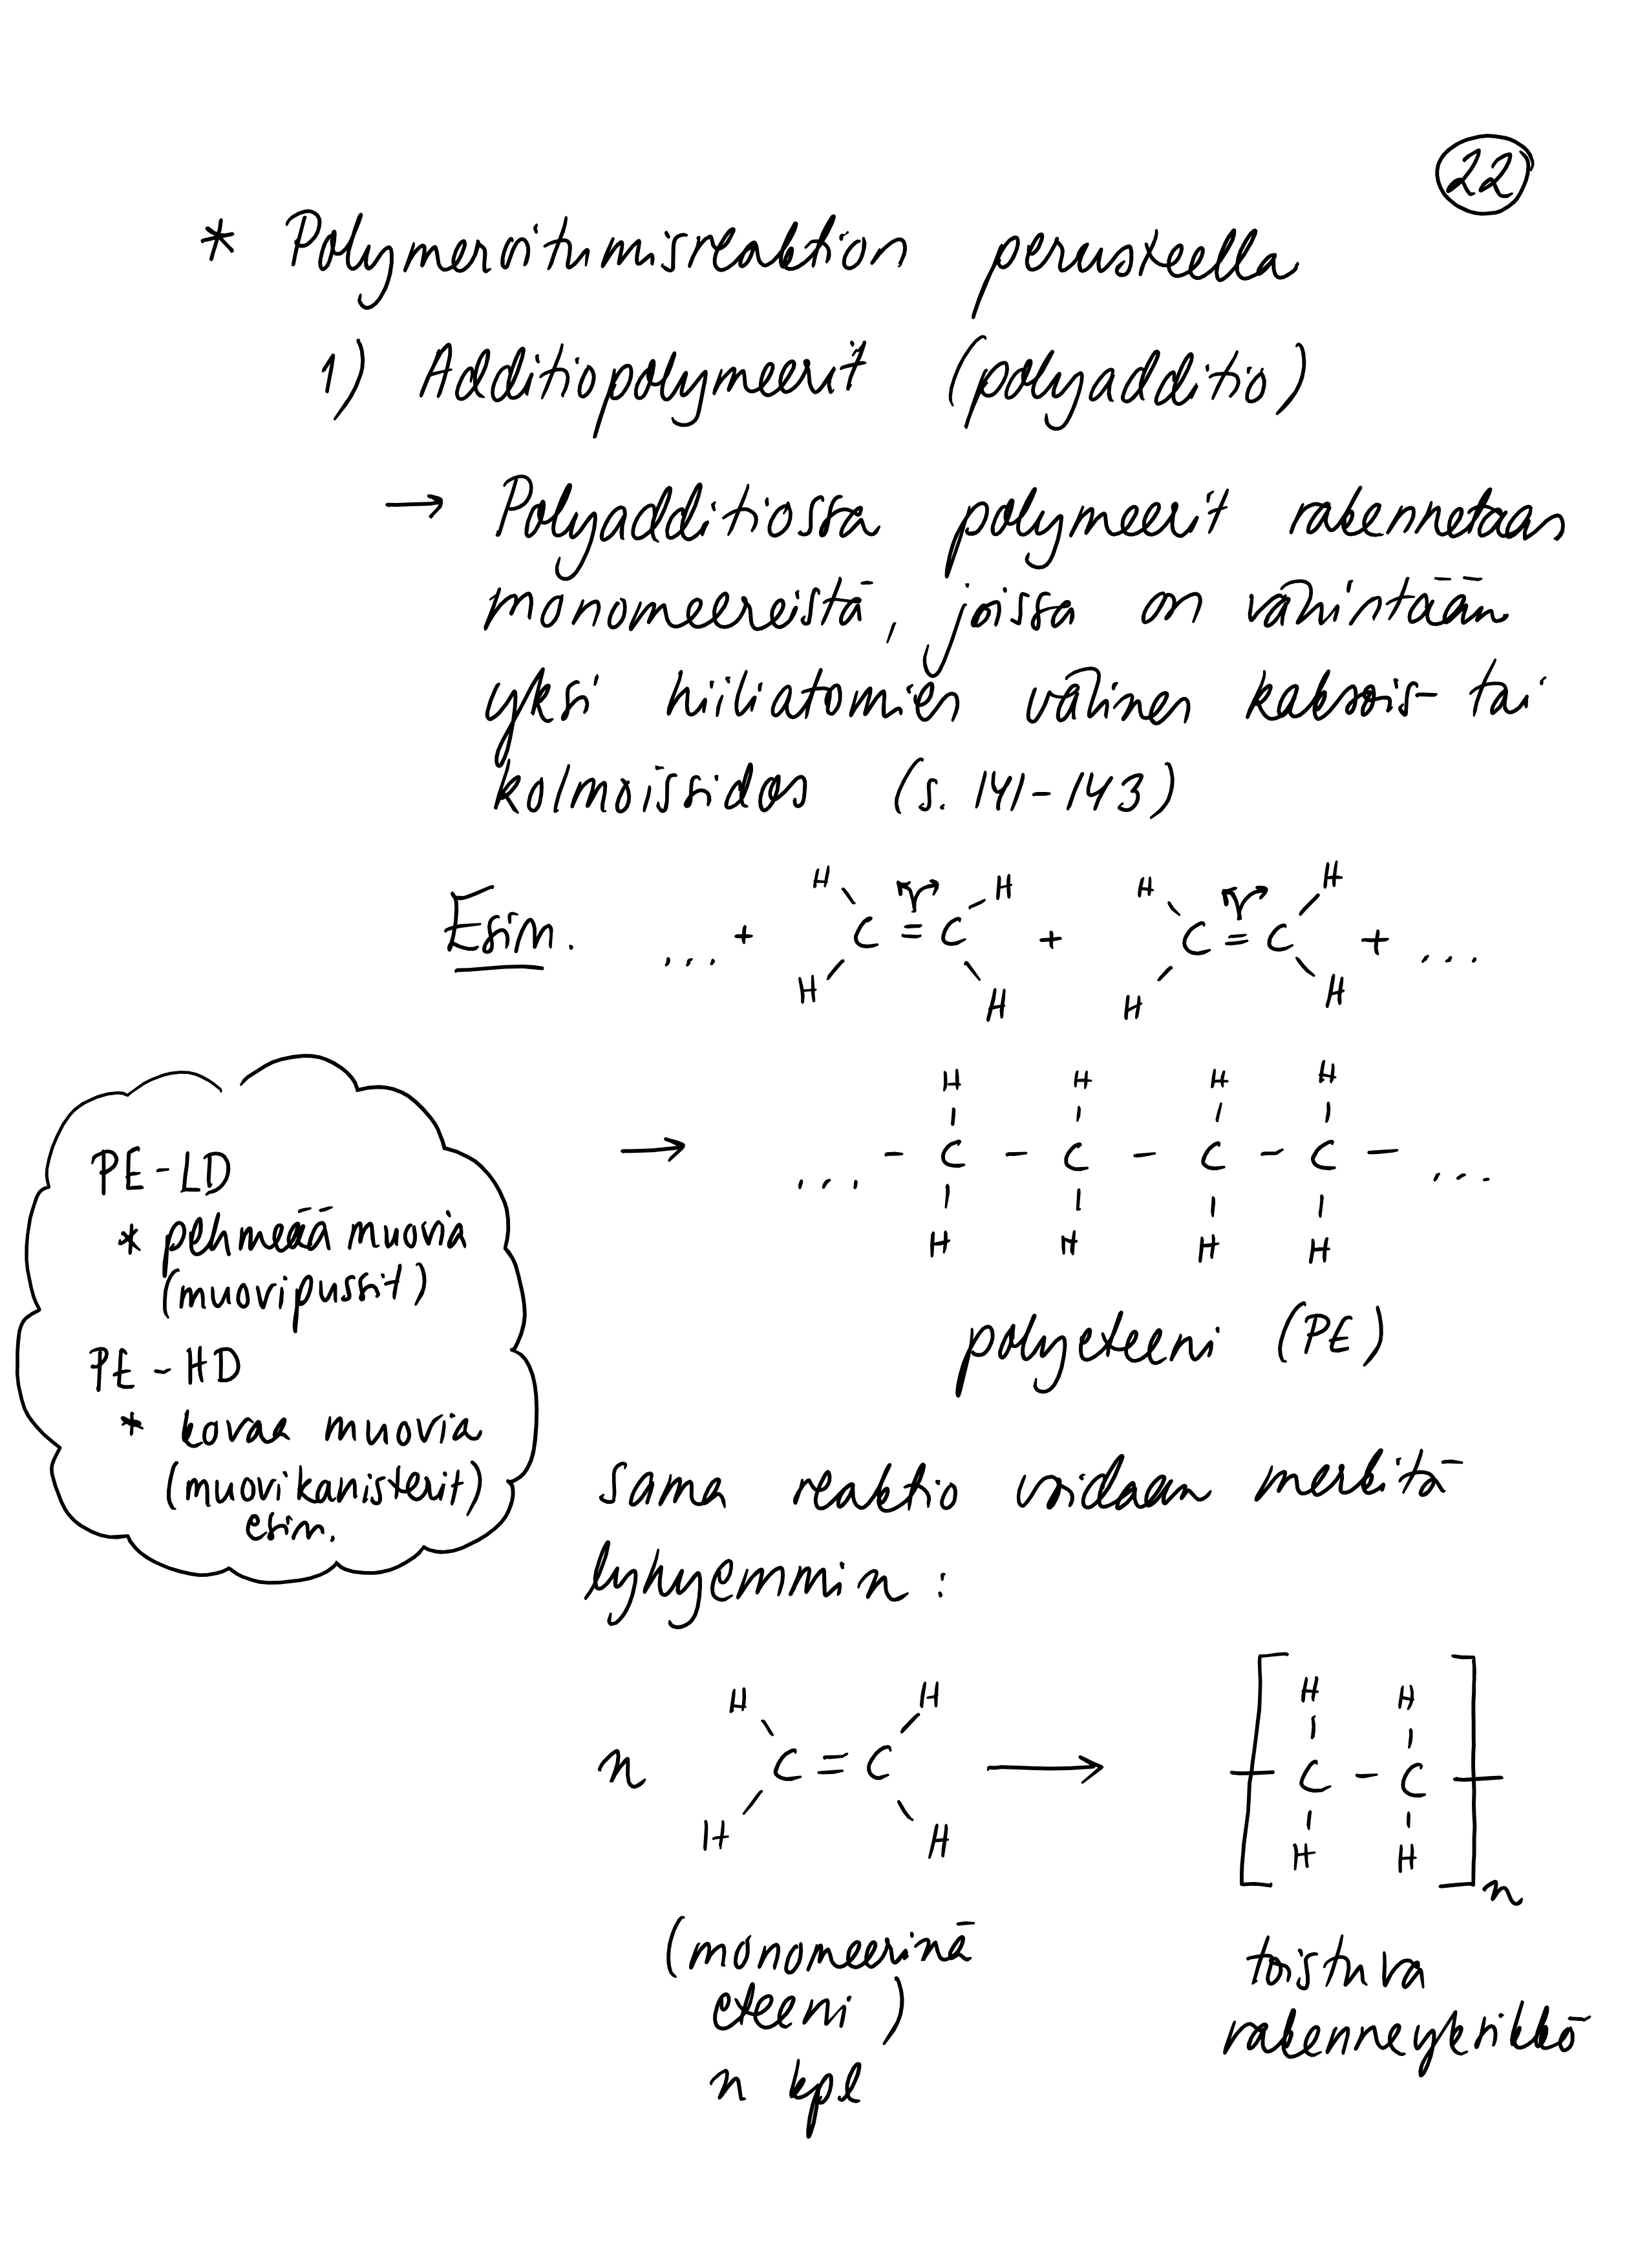 22
* Polymeroitumisreaktion perusteella
1) Additiopolymeerit (polyadditio)
→ Polyadditiossa polymeerit rakennetaan
monomeereistä, joissa on vähintään
yksi hiiliatomien välinen kaksois- tai
kolmoissidos (s. 141-143)
H H H H
Esim. ... + C = C + C = C + ...
H H H H
H H H H
→ ... - C - C - C - C - ...
H H H H
polyeteeni (PE)
PE-LD
* pehmeää muovia
(muovipussit)
PE-HD
* kovaa muovia
(muovikanisterit)
esim.
sama reaktio voidaan merkitä
lyhyemmin :
H H H H
n C = C → [ - C - C - ]n
H H H H
(monomeerinä
eteeni)
n kpl
toistuva
rakenneyksikkö